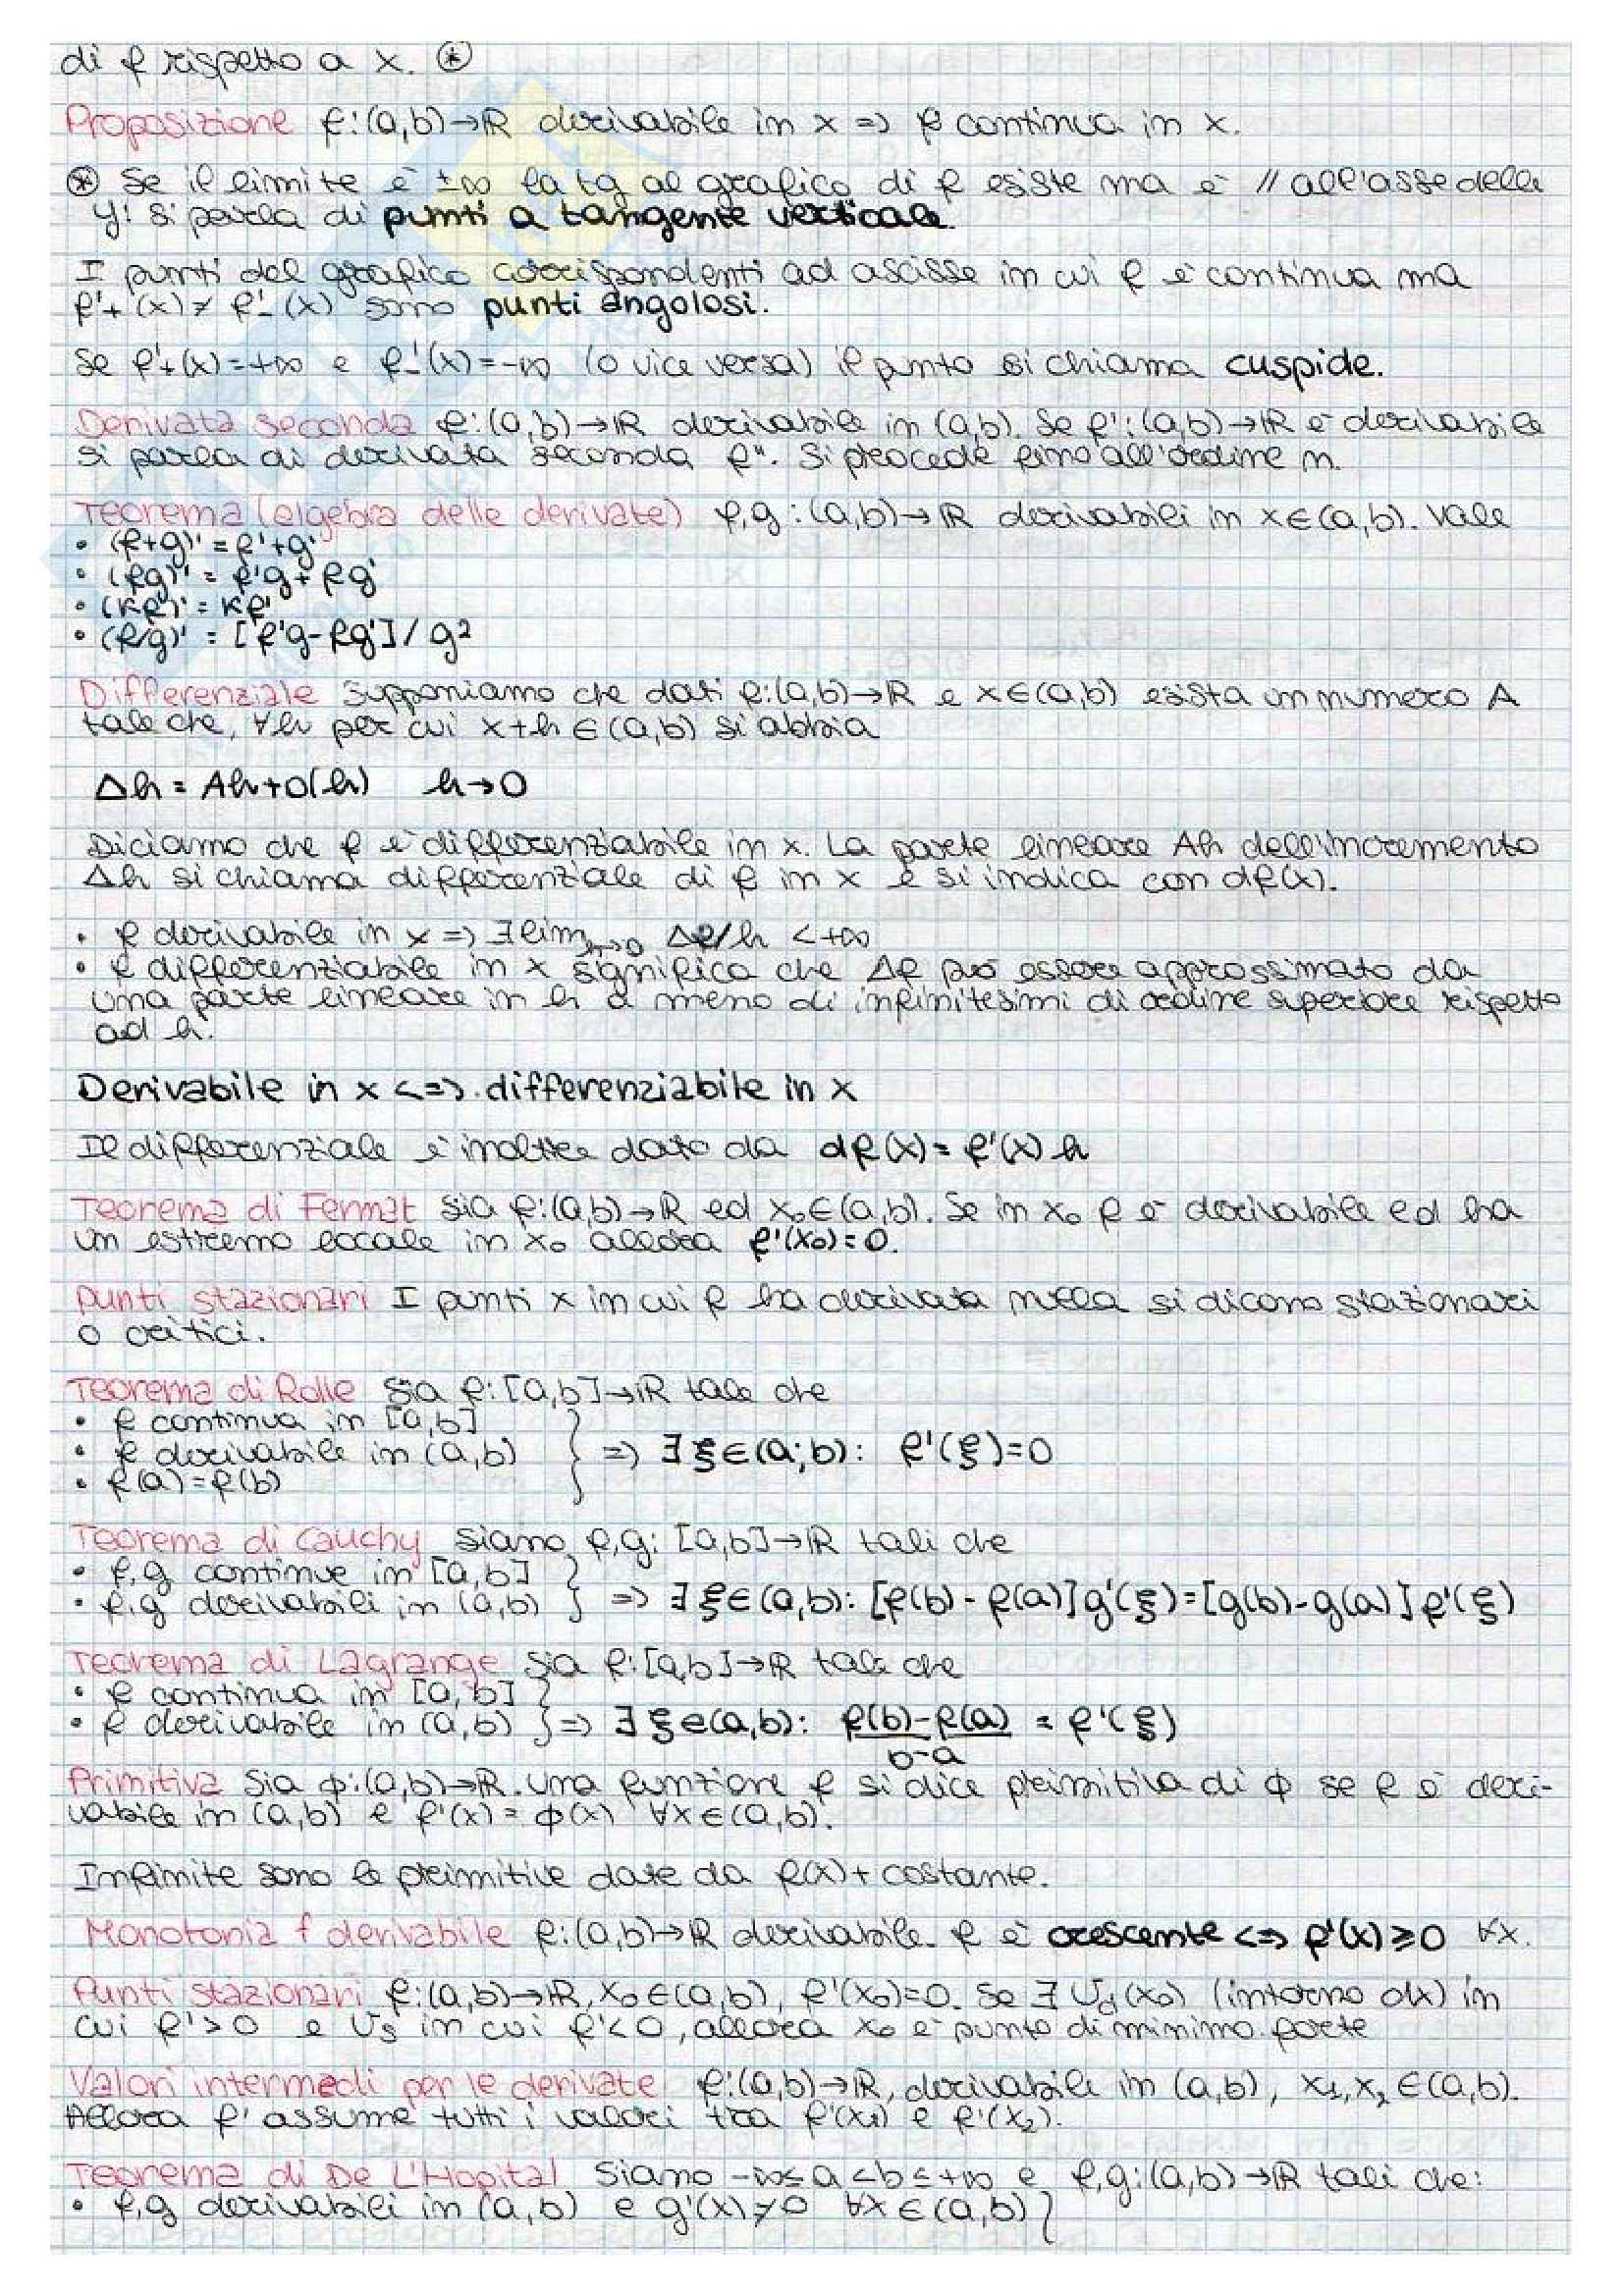 di f rispetto a x. ⊛
Proposizione f:(a,b)→ℝ derivabile in x => f continua in x.
⊛ Se il limite è ±∞ la tg al grafico di f esiste ma è // all'asse delle
y: si parla di punti a tangente verticale.
I punti del grafico corrispondenti ad ascisse in cui f è continua ma
f'+(x) ≠ f'-(x) sono punti angolosi.
Se f'+(x)=+∞ e f'-(x)=-∞ (o vice versa) il punto si chiama cuspide.
Derivata seconda f:(a,b)→ℝ derivabile in (a,b). Se f':(a,b)→ℝ è derivabile
si parla di derivata seconda f". Si procede fino all'ordine n.
Teorema (algebra delle derivate) f,g:(a,b)→ℝ derivabili in x∈(a,b). Vale
• (f+g)' = f'+g'
• (fg)' = f'g+fg'
• (kf)' = kf'
• (f/g)' = [f'g-fg']/g²
Differenziale Supponiamo che dati f:(a,b)→ℝ e x∈(a,b) esista un numero A
tale che, ∀h per cui x+h∈(a,b) si abbia
Δh = Ah+o(h) h→0
Diciamo che f è differenziabile in x. La parte lineare Ah dell'incremento
Δh si chiama differenziale di f in x e si indica con df(x).
• f derivabile in x => ∃ lim h→0 Δf/h <+∞
• f differenziabile in x significa che Δf può essere approssimato da
una parte lineare in h a meno di infinitesimi di ordine superiore rispetto
ad h.
Derivabile in x <=> differenziabile in x
Il differenziale è inoltre dato da df(x) = f'(x) h
Teorema di Fermat Sia f:(a,b)→ℝ ed x₀∈(a,b). Se in x₀ f è derivabile ed ha
un estremo locale in x₀ allora f'(x₀)=0.
Punti stazionari I punti x in cui f ha derivata nulla si dicono stazionari
o critici.
Teorema di Rolle Sia f:[a,b]→ℝ tale che
• f continua in [a,b]
• f derivabile in (a,b) } => ∃ ξ∈(a;b): f'(ξ)=0
• f(a)=f(b)
Teorema di Cauchy Siano f,g: [a,b]→ℝ tali che
• f,g continue in [a,b]
• f,g derivabili in (a,b) } => ∃ ξ∈(a,b): [f(b)-f(a)]g'(ξ)=[g(b)-g(a)]f'(ξ)
Teorema di Lagrange Sia f:[a,b]→ℝ tale che
• f continua in [a,b]
• f derivabile in (a,b) } => ∃ ξ∈(a,b): f(b)-f(a) = f'(ξ)
b-a
Primitiva Sia ϕ:(a,b)→ℝ. Una funzione f si dice primitiva di ϕ se f è deri-
vabile in (a,b) e f'(x) = ϕ(x) ∀x∈(a,b).
Infinite sono le primitive date da f(x)+costante.
Monotonia f derivabile f:(a,b)→ℝ derivabile. f è crescente <=> f'(x)≥0 ∀x.
Punti stazionari f:(a,b)→ℝ, x₀∈(a,b), f'(x₀)=0. Se ∃ Ud(x₀) (intorno dx) in
cui f'>0 e Us in cui f'<0, allora x₀ è punto di minimo forte
Valori intermedi per le derivate f:(a,b)→ℝ, derivabile in (a,b), x₁,x₂∈(a,b).
Allora f' assume tutti i valori tra f'(x₁) e f'(x₂).
Teorema di De L'Hopital Siano -∞≤a<b≤+∞ e f,g:(a,b)→ℝ tali che:
• f,g derivabili in (a,b) e g'(x)≠0 ∀x∈(a,b) }